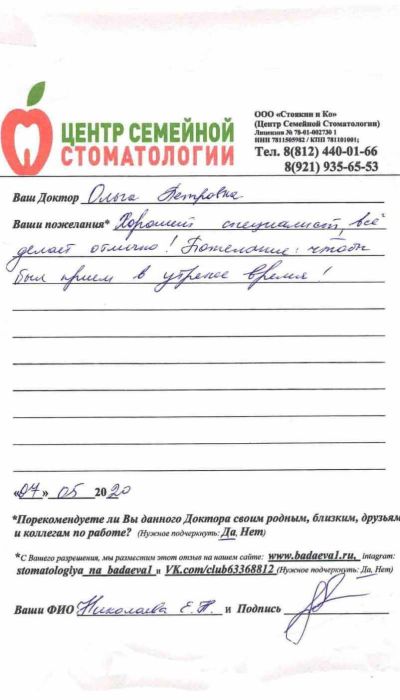 ЦЕНТР СЕМЕЙНОЙ
СТОМАТОЛОГИИ
ООО «Стоякин и Ко»
(Центр Семейной Стоматологии)
Лицензия № 78-01-002730 1
ИНН 7811505982 / КПП 781101001;
Тел. 8(812) 440-01-66
8(921) 935-65-53
Ваш Доктор Ольга Петровна
Ваши пожелания* Хороший специалист, всё
делает отлично! Пожелание: чтобы
был прием в утренее время!
«07» 05 2020
*Порекомендуете ли Вы данного Доктора своим родным, близким, друзьям
и коллегам по работе? (Нужное подчеркнуть: Да, Нет)
*С Вашего разрешения, мы разместим этот отзыв на нашем сайте: www.badaeva1.ru, intagram:
stomatologiya_na_badaeva1 и VK.com/club63368812 (Нужное подчеркнуть: Да, Нет)
Ваши ФИО Николаева Е.П. и Подпись